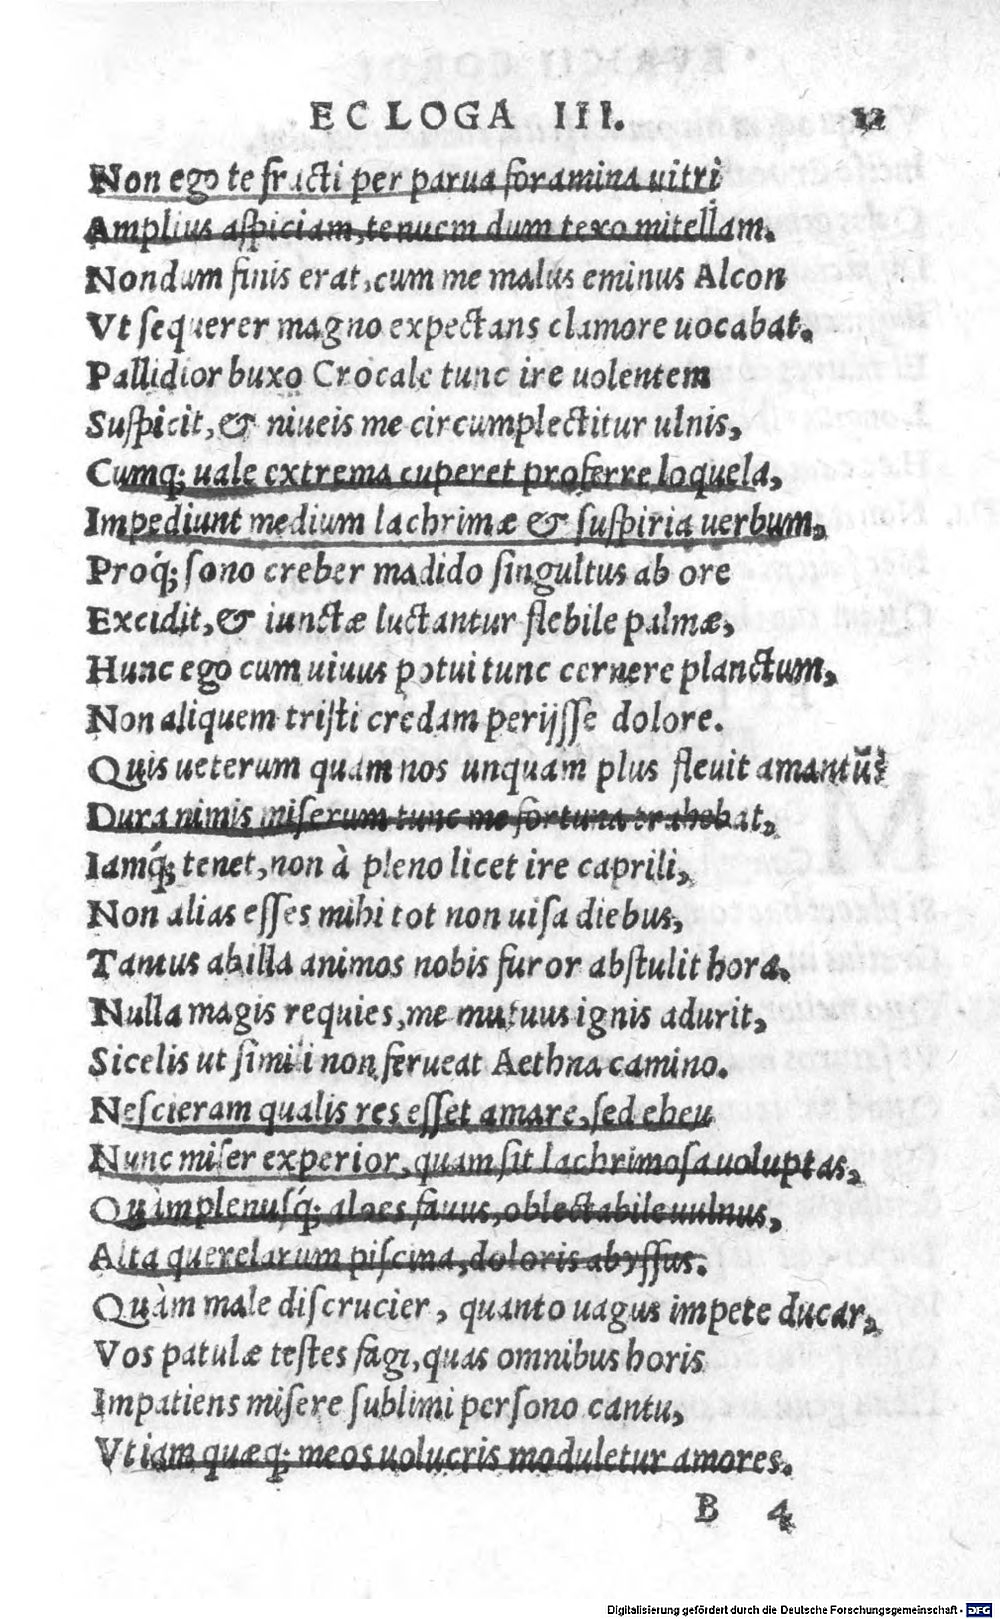 ECLOGA III. 12
Non ego te fracti per parua foramina uitri
Amplius aſpiciam, tenuem dum texo mitellam.
Nondum finis erat, cum me malus eminus Alcon
Vt ſequerer magno expectans clamore uocabat.
Pallidior buxo Crocale tunc ire uolentem
Suſpicit, & niueis me circumplectitur ulnis,
Cumq; uale extrema cuperet proferre loquela,
Impediunt medium lachrimæ & ſuſpiria uerbum,
Proq́; ſono creber madido ſingultus ab ore
Excidit, & iunctæ luctantur flebile palmæ,
Hunc ego cum uiuus potui tunc cernere planctum,
Non aliquem triſti credam perijſſe dolore.
Quis ueterum quam nos unquam plus fleuit amantũ?
Dura nimis miſerum tunc me fortuna trahebat,
Iamq́; tenet, non à pleno licet ire caprili,
Non alias eſſes mihi tot non uiſa diebus,
Tantus ab illa animos nobis furor abſtulit hora.
Nulla magis requies, me mutuus ignis adurit,
Sicelis ut ſimili non ferueat Aethna camino.
Neſcieram qualis res eſſet amare, ſed eheu
Nunc miſer experior, quam ſit lachrimoſa uoluptas,
Quàm plenuſq́; aloes fauus, oblectabile uulnus,
Alta querelarum piſcina, doloris abyſſus.
Quàm male diſcrucier, quanto uagus impete ducar,
Vos patulæ teſtes fagi, quas omnibus horis
Impatiens miſere ſublimi perſono cantu,
Vt iam quæq; meos uolucris moduletur amores.
B 4
Digitalisierung gefördert durch die Deutsche Forschungsgemeinschaft - DFG